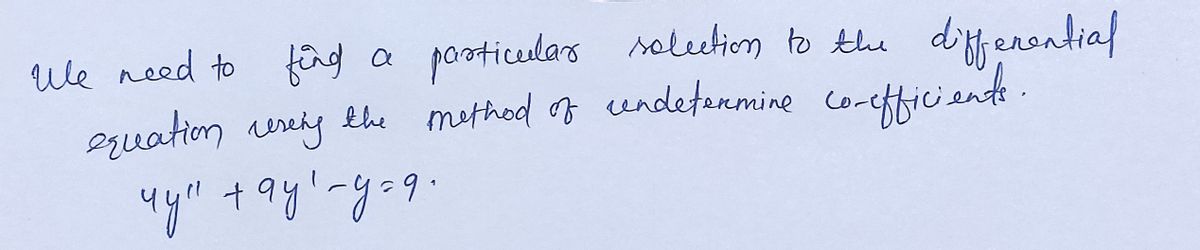 We need to find a particular solution to the differential
equation using the method of undetermine co-efficients.
4y'' + 9y' - y = 9.